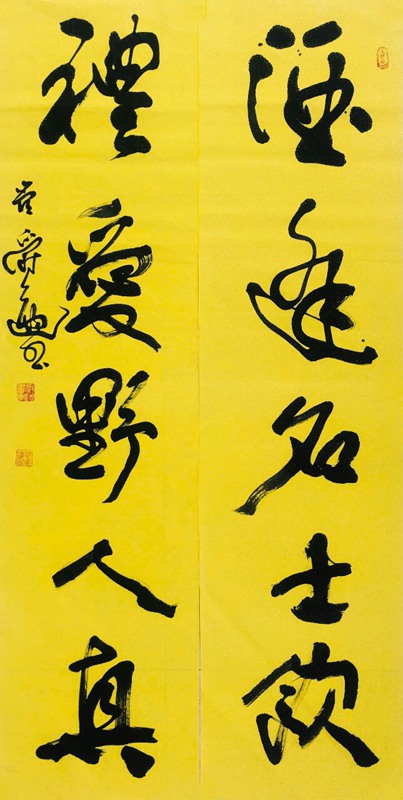 酒逢名士飲
禮愛野人真